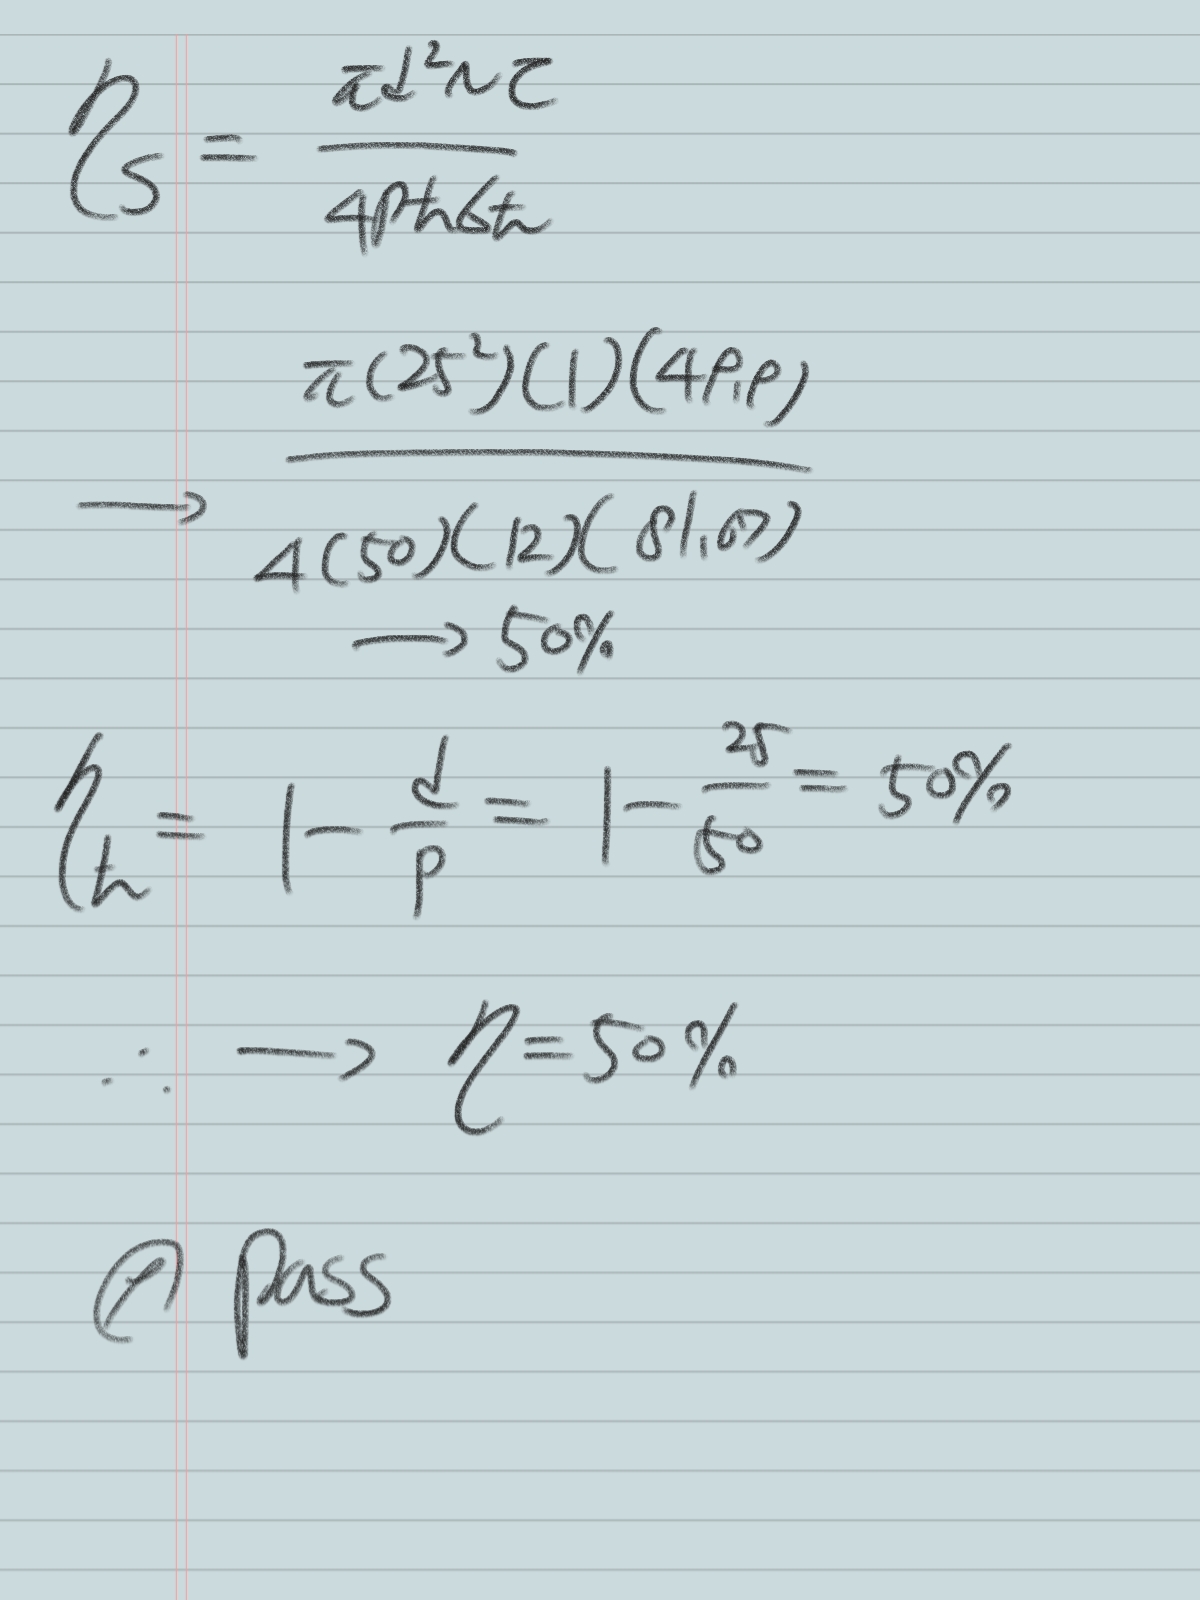 η_s = πd²Nτ / 4Ptσt
→ π(25²)(1)(49.9) / 4(50)(12)(81.67)
→ 50%
η_t = 1 - d/p = 1 - 25/50 = 50%
∴ → η = 50%
pass